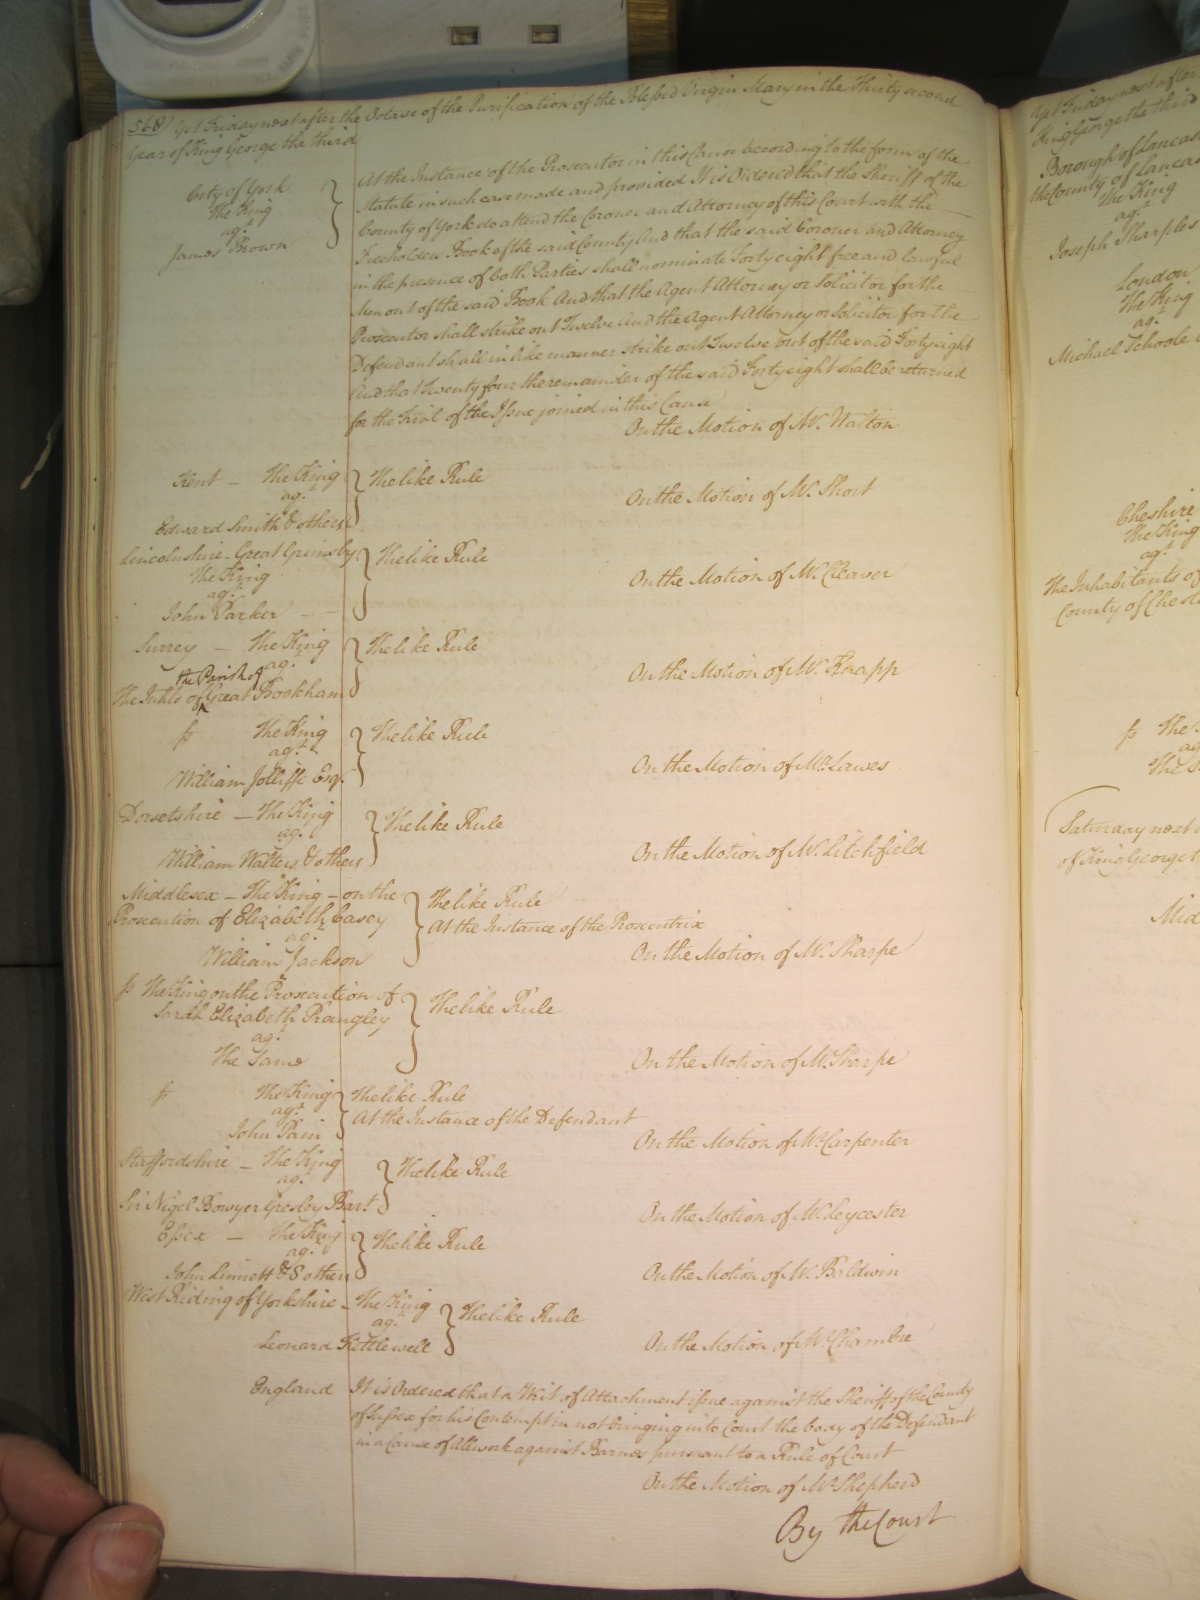 568 Yet Friday next after the Octave of the Purification of the Blessed Virgin Mary in the Thirty second
Year of King George the third
City of York
The King
agt
James Brown
At the Instance of the Prosecutor in this Cause according to the form of the
Statute in such case made and provided It is Ordered that the Sheriff of the
County of York do attend the Coroner and Attorney of this Court with the
Freeholders Book of the said County And that the said Coroner and Attorney
in the presence of both Parties shall nominate Forty eight free and lawful
Men out of the said Book And that the Agent Attorney or Solicitor for the
Prosecutor shall strike out Twelve And the Agent Attorney or Solicitor for the
Defendant shall in like manner strike out Twelve out of the said Forty eight
And that Twenty four the remainder of the said Forty eight shall be returned
for the Trial of the Issue joined in this Cause
On the Motion of Mr. Walton
Kent – The King
agt
Edward Smith & others
The like Rule
On the Motion of Mr. Short
Lincolnshire – Great Grimsby
The King
agt
John Parker
The like Rule
On the Motion of Mr. Cleaver
Surrey – The King
agt
the Parish of
The Inhts of Great Bookham
The like Rule
On the Motion of Mr. Knapp
fs The King
agt
William Jolliffe Esqr.
The like Rule
On the Motion of Mr. Lawes
Dorsetshire – The King
agt
William Walters & others
The like Rule
On the Motion of Mr. Litchfield
Middlesex – The King – on the
Prosecution of Elizabeth Casey
agt
William Jackson
The like Rule
At the Instance of the Prosecutrix
On the Motion of Mr. Sharpe
fs The King on the Prosecution of
Sarah Elizabeth Rangley
agt
The Same
The like Rule
On the Motion of Mr. Sharpe
fs The King
agt
John Pain
The like Rule
At the Instance of the Defendant
On the Motion of Mr. Carpenter
Staffordshire – The King
agt
Sir Nigel Bowyer Gresley Bart
The like Rule
On the Motion of Mr. Leycester
Essex – The King
agt
John Linnett & 8 others
The like Rule
On the Motion of Mr. Baldwin
West Riding of Yorkshire – The King
agt
Leonard Kettlewell
The like Rule
On the Motion of Mr. Chambre
England It is Ordered that a Writ of Attachment issue against the Sheriff of the County
of Sussex for his Contempt in not bringing into Court the body of the Defendant
in a Cause of Attwork against Barnes pursuant to a Rule of Court
On the Motion of Mr. Shepherd
By the Court
Yet Friday next after
King George the third
Borough of Lancas
the County of Lancas
The King
agt
Joseph Sharples
London
The King
agt
Michael Schoole
Cheshire
The King
agt
The Inhabitants of
County of Chest
fs The
ag
The
Saturday next
of King George t
Mid